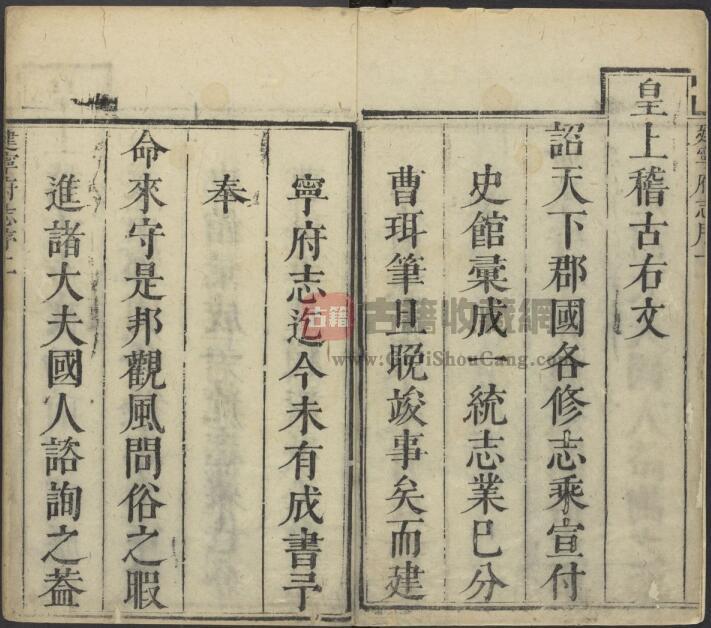 皇上稽古右文
詔天下郡國各修志乘宣付
史館彙成一統志業已分
曹珥筆旦晚竣事矣而建
寧府志迄今未有成書予
奉
命來守是邦觀風問俗之暇
進諸大夫國人諮詢之葢
建寧府志序一
建寧府志序二
古籍
古籍收藏網
www.GujiShouCang.com